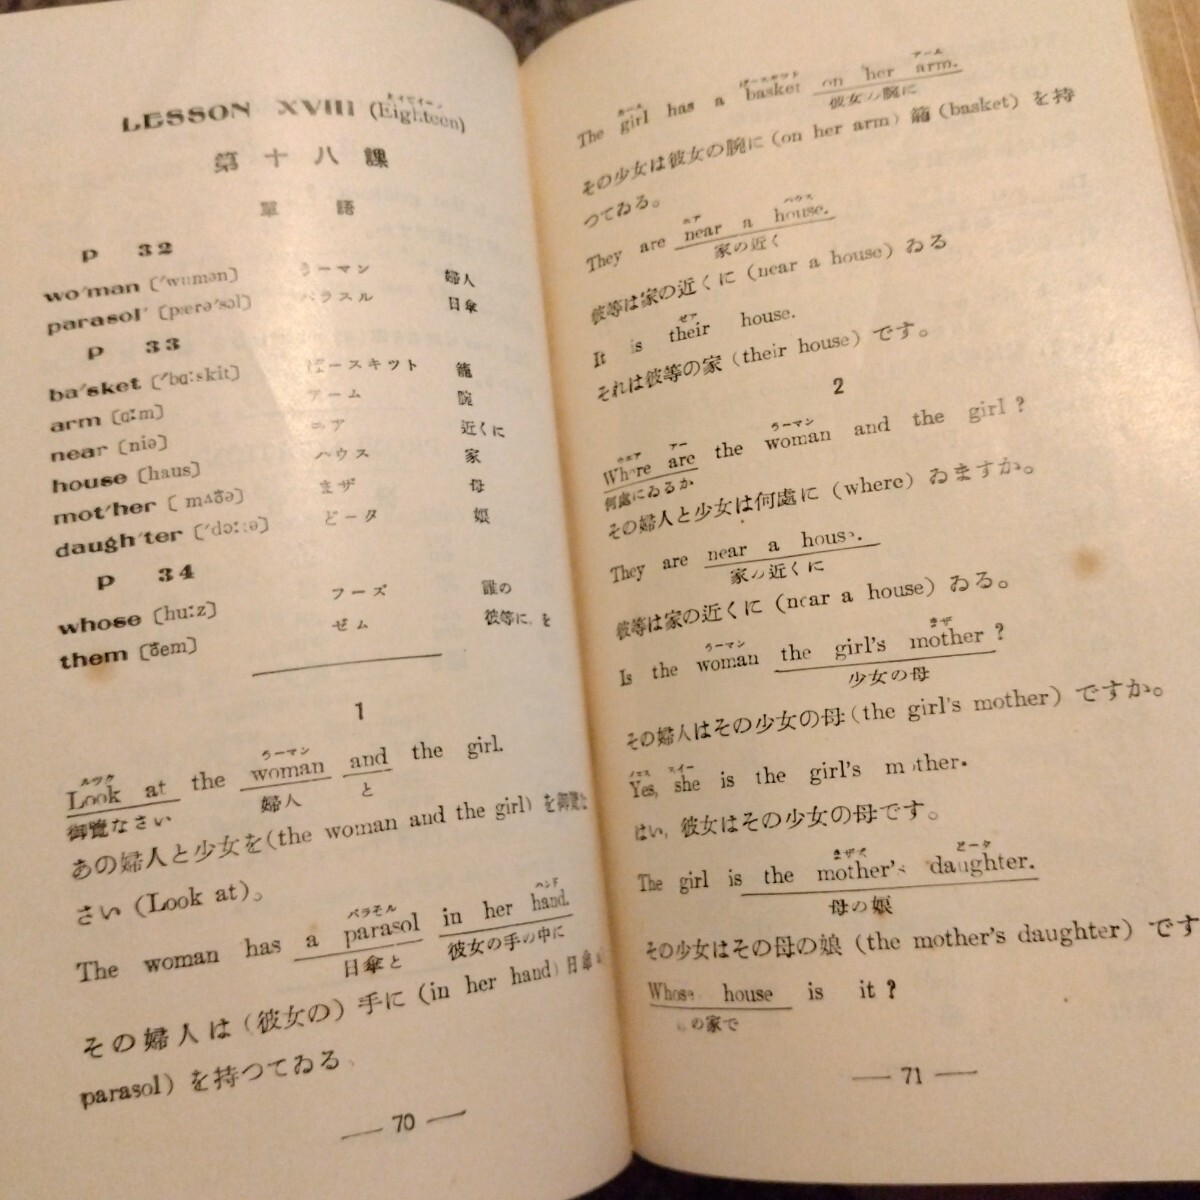 LESSON XVIII (Eighteen)
エイティーン
第十八課
單語
p 32
wo'man [ˈwumən] うーマン 婦人
parasol' [pærəˈsɔl] パラスル 日傘
p 33
ba'sket [ˈbɑːskit] ばースキット 籠
arm [ɑːm] アーム 腕
near [niə] ニア 近くに
house [haus] ハウス 家
mot'her [mʌðə] まザ 母
daugh'ter [ˈdɔːtə] どータ 娘
p 34
whose [huːz] フーズ 誰の
them [ðem] ゼム 彼等に、を
1
ルック うーマン
Look at the woman and the girl.
御覽なさい 婦人 と
あの婦人と少女を(the woman and the girl)を御覽な
さい (Look at)。
パラソル ハンド
The woman has a parasol in her hand.
日傘と 彼女の手の中に
その婦人は(彼女の)手に(in her hand)日傘
parasol) を持つてゐる
— 70 —
ばースキット アーム
The girl has a basket on her arm.
彼女の腕に
その少女は彼女の腕に(on her arm)籠(basket)を持
つてゐる。
ニア ハウス
They are near a house.
家の近く
彼等は家の近くに(near a house)ゐる
ゼア
It is their house.
それは彼等の家(their house)です。
2
ホエア アー うーマン
Where are the woman and the girl?
何處にゐるか
その婦人と少女は何處に(where)ゐますか。
They are near a house.
家の近くに
彼等は家の近くに(near a house)ゐる。
うーマン まザ
Is the woman the girl's mother?
少女の母
その婦人はその少女の母(the girl's mother)ですか。
スイー
Yes, she is the girl's mother.
はい、彼女はその少女の母です。
まザズ どータ
The girl is the mother's daughter.
母の娘
その少女はその母の娘(the mother's daughter)です
Whose house is it?
の家で
— 71 —